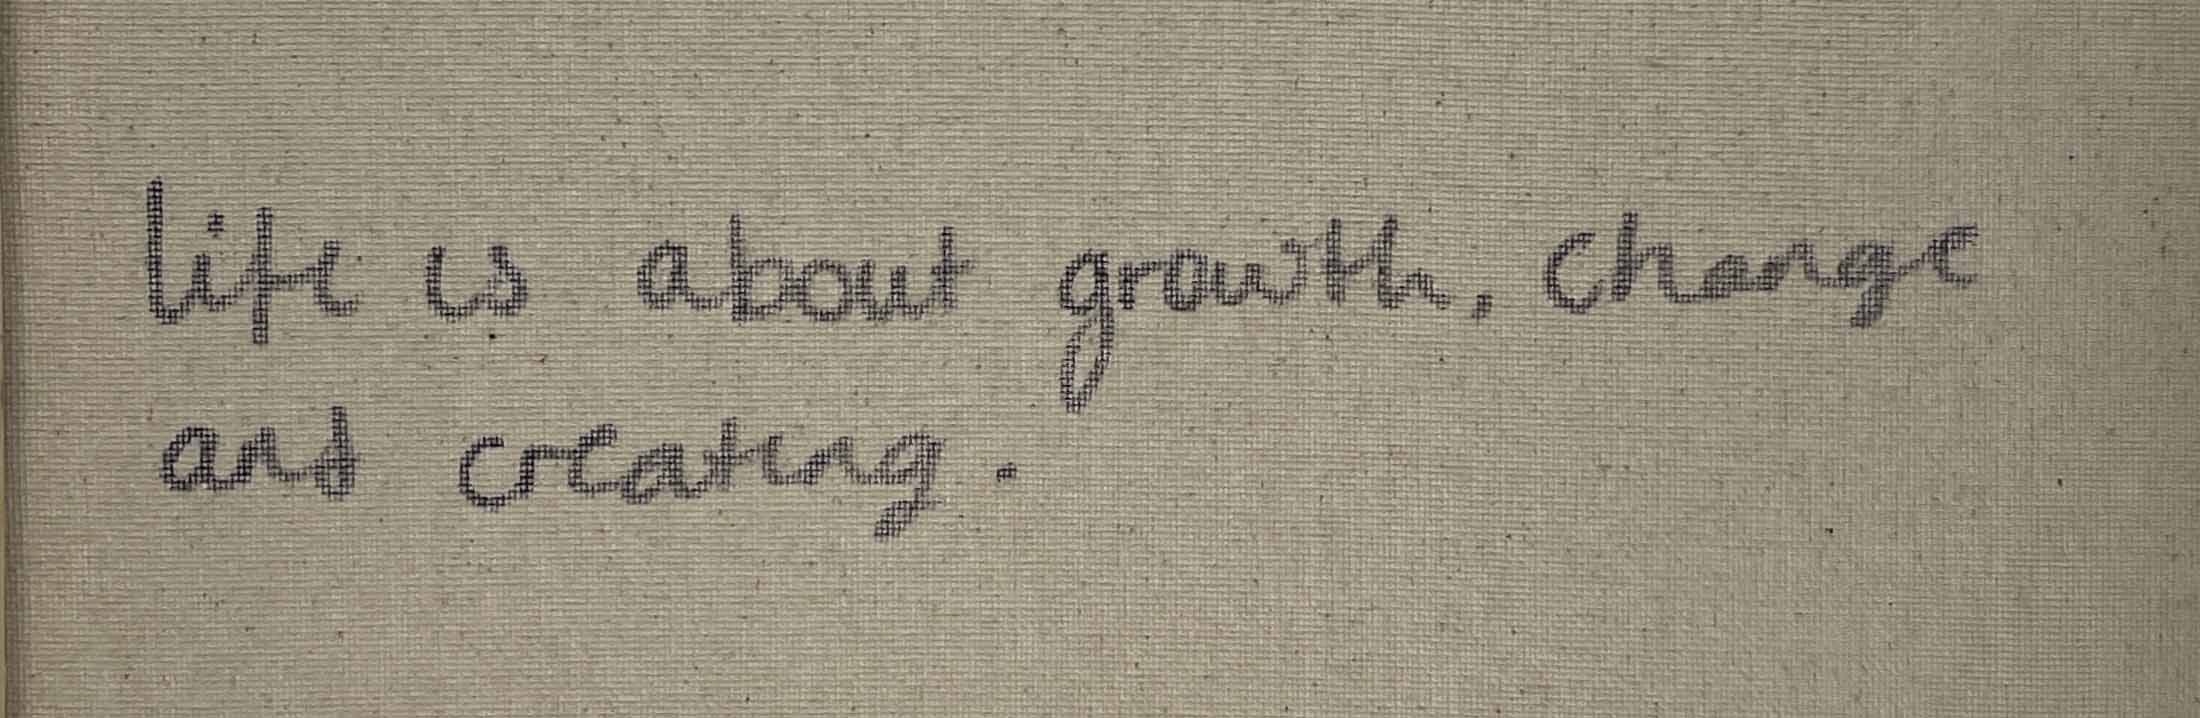 life is about growth, change
and creating.